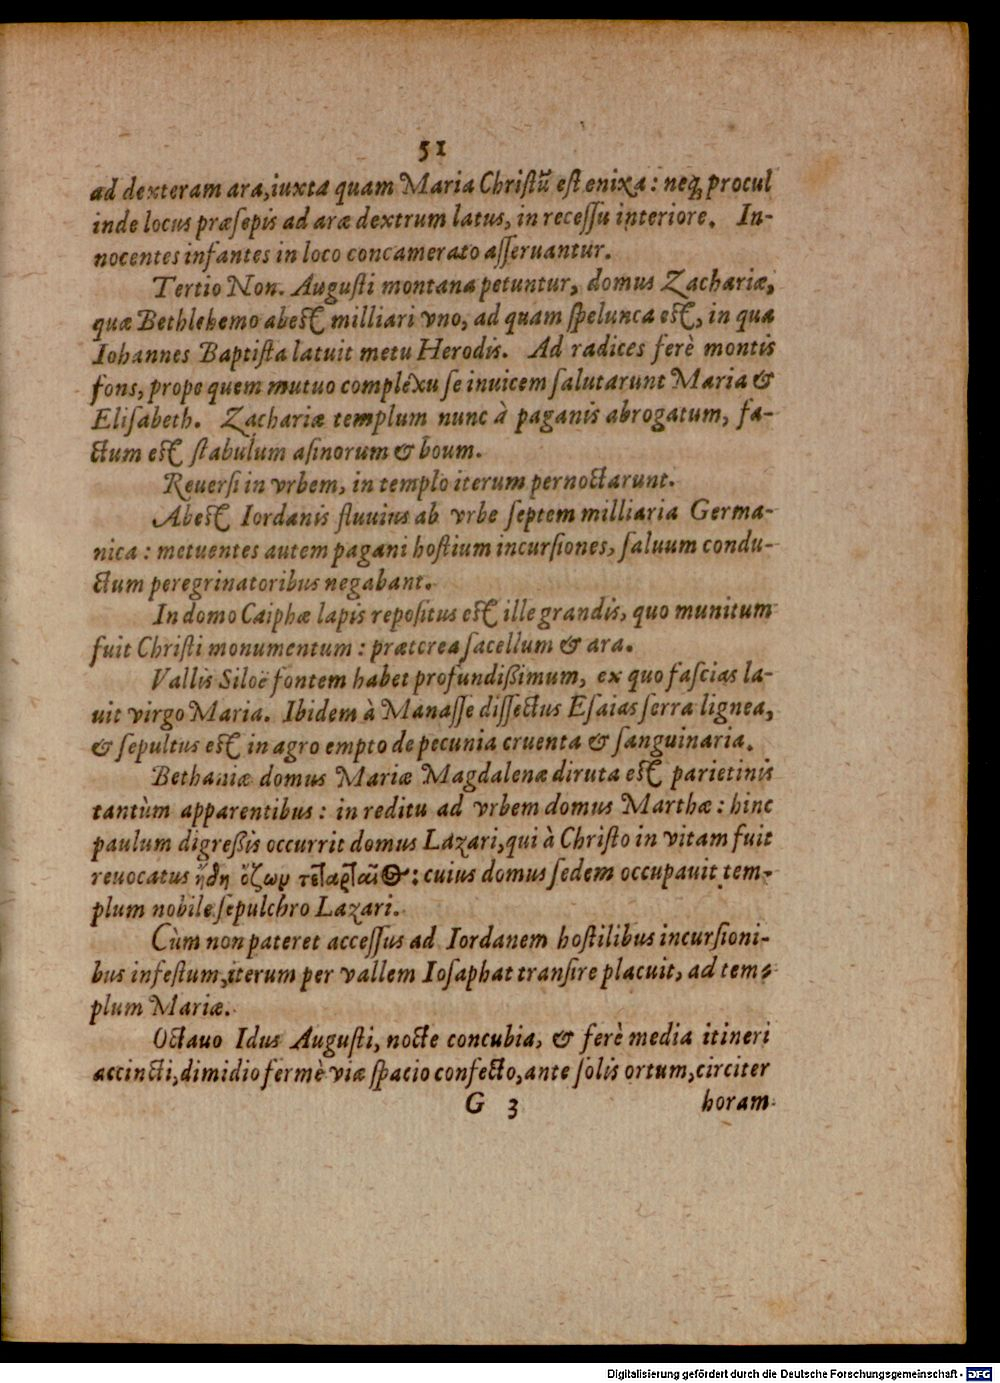 51
ad dexteram ara, iuxta quam Maria Chriſtū eſt enixa: neq́ꝫ procul
inde locus præſepis ad aræ dextrum latus, in receſſu interiore. In-
nocentes infantes in loco concamerato aſſeruantur.
Tertio Non. Auguſti montana petuntur, domus Zachariæ,
quæ Bethlehemo abeſt milliari vno, ad quam ſpelunca eſt, in qua
Iohannes Baptiſta latuit metu Herodis. Ad radices ferè montis
fons, prope quem mutuo complexu ſe inuicem ſalutarunt Maria &
Eliſabeth. Zachariæ templum nunc à paganis abrogatum, fa-
ctum eſt ſtabulum aſinorum & boum.
Reuerſi in vrbem, in templo iterum pernoctarunt.
Abeſt Iordanis fluuius ab vrbe ſeptem milliaria Germa-
nica: metuentes autem pagani hoſtium incurſiones, ſaluum condu-
ctum peregrinatoribus negabant.
In domo Caiphæ lapis repoſitus eſt ille grandis, quo munitum
fuit Chriſti monumentum: præterea ſacellum & ara.
Vallis Siloë fontem habet profundißimum, ex quo faſcias la-
uit virgo Maria. Ibidem à Manaſſe diſſectus Eſaias ſerra lignea,
& ſepultus eſt in agro empto de pecunia cruenta & ſanguinaria.
Bethaniæ domus Mariæ Magdalenæ diruta eſt parietinis
tantùm apparentibus: in reditu ad vrbem domus Marthæ: hinc
paulum digreßis occurrit domus Lazari, qui à Chriſto in vitam fuit
reuocatus ἤδη ὄζων τεταρταῖος: cuius domus ſedem occupauit tem-
plum nobile ſepulchro Lazari.
Cùm non pateret acceſſus ad Iordanem hoſtilibus incurſioni-
bus infeſtum, iterum per vallem Ioſaphat tranſire placuit, ad tem-
plum Mariæ.
Octauo Idus Auguſti, nocte concubia, & ferè media itineri
accincti, dimidio fermè viæ ſpacio confecto, ante ſolis ortum, circiter
G 3 horam
Digitalisierung gefördert durch die Deutsche Forschungsgemeinschaft - DFG